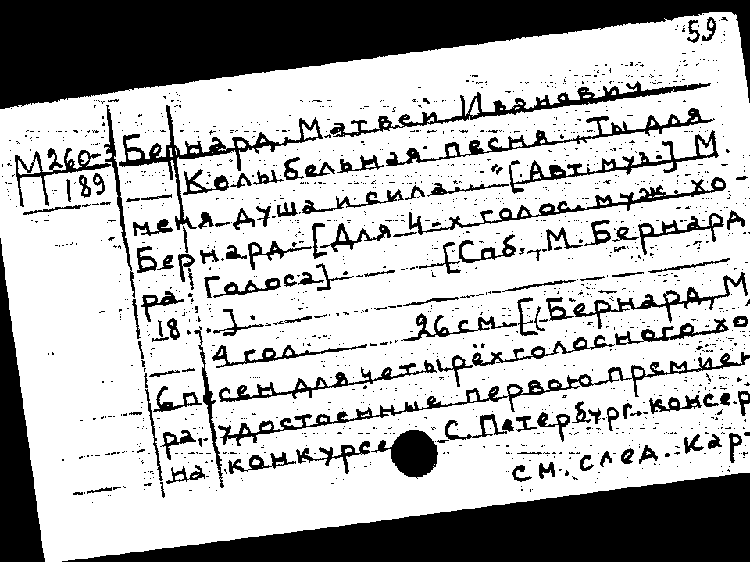 59
М260-3 Бернард, Матвей Иванович
П 189 Колыбельная песня. „Ты для
меня душа и сила..." [Авт. муз.] М.
Бернард. [Для 4-х голос. муж. хо-
ра. Голоса]. [Спб., М. Бернард
18...].
4 гол. 26 см. [(Бернард, М
6 песен для четырёхголосного хо
ра, удостоенные первою премиен
на конкурсе С. Петербург. консер
см. след. кар